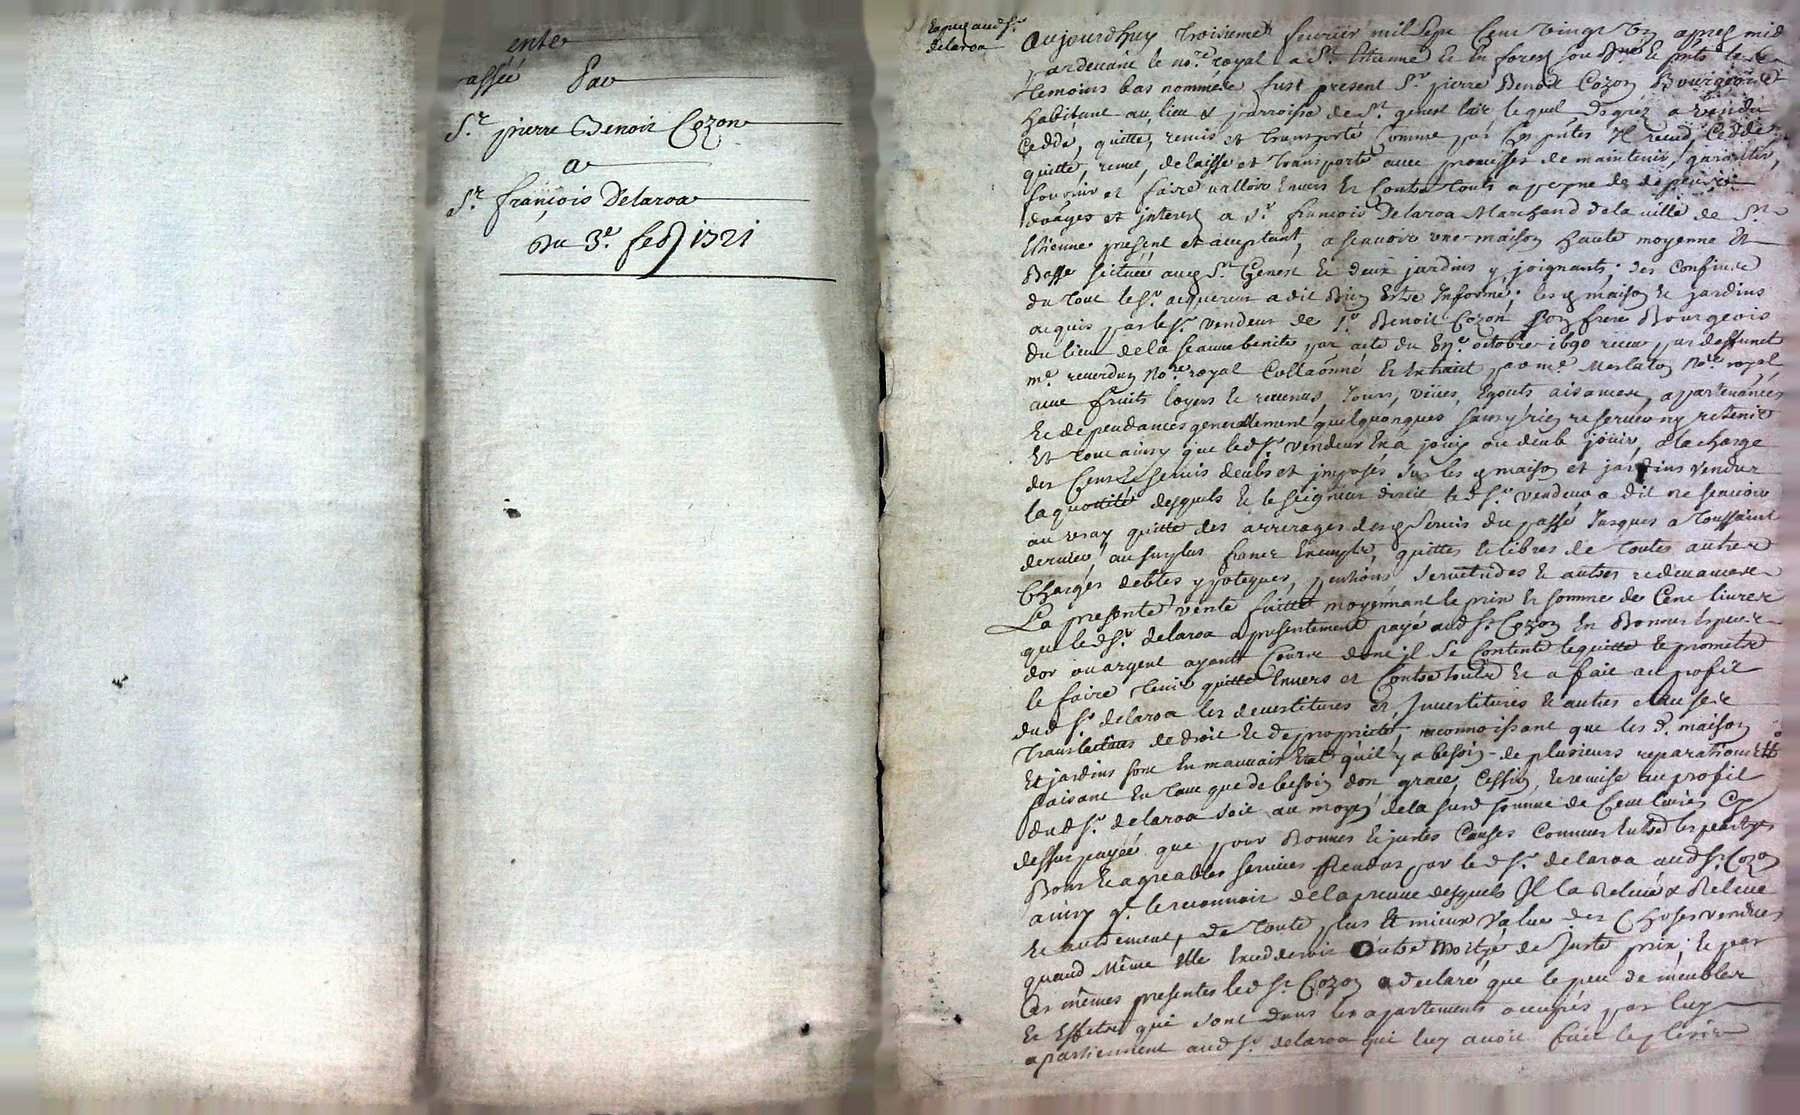 ente
assée Par
S.r pierre Benoit Cozon
a
S.r françois Delaroa
Du 3.e feb 1721
Expedié aud s.r
delaroa
Aujourdhuy troisieme fevrier mil Sept Cent vingt un apres midy
pardevant le no.re royal a S.t Etienne en forest sousigné et pnts les
temoins bas nommés fust present S.r pierre Benoit Cozon Bourgeois
habitant au lieu & parroisse de S.t genest lair lequel de gré a vendu
Cedde, quitte, remis et transporté Comme par Ces pntes Il vend, Cedde,
quitte, remet, delaisse et transporte avec promesses de maintenir, garantir,
fournir et faire valloir Envers Et Contre touts a peyne de
domages et interest a S.r françois Delaroa Marchand de la ville de S.t
Etienne present et aceptant, a scavoir une maison haute moyenne Et
Basse scituée aud S.t Genest Et deux jardins y joignants; des Confins
du tout le S.r acquereur a dit Bien Estre Informé; lesd maison Et jardins
acquis par le S.r vendeur de S.r Benoit Cozon Son frere Bourgeois
du lieu de la seauve benite par acte du octobre 1690 receu par deffunct
m.e reverdun No.re royal Collaonné Et Extrait par m.e Merlaton No.re royal
avec fruits loyers Et revenus, Jours, vües, Egouts aisances, appartenances
Et dependances generallement quelquonques sans y rien reserver ny retenir
Et tout ainsy que led S.r vendeur En a jouy ou deub jouir, a la charge
des Cens Et servis deubs et imposés sur lesd maison et jardins vendus
la quottité desquels Et le seigneur direct led S.r vendeur a dit ne scavoir
au vray quitte des arrerages desd servis du passé Jusques a Toussaint
dernier, au surplus franc Exempts, quittes Et libres de toutes autres
Charges debtes ypoteques, pentions servitudes Et autres redevances
La presente vente faitte moyennant le prix Et somme de Cent livres
que led S.r delaroa a presentement payé aud S.r Cozon En Bonnes Especes
dor ou argent ayant Cours dont il se Contente le quitte Et promet
le faire tenir quitte Envers et Contre touts Et a fait au profit
dud S.r delaroa les devestitures et Investitures Et autres clauses
translatives de droit Et de proprieté, reconnoissant que les d. maison
Et jardins sont En mauvais Etat quil y a besoin de plusieurs reparations Et
faisant En tant que de besoin don, grace, Cession, Et remise au profit
dud S.r delaroa soit au moyen de la susd somme de Cent livres Cy
dessus payée que pour Bonnes Et justes Causes Connues Entre les parties
Bons Et agreables services Rendus par led S.r delaroa aud S.r Cozon
ainsy q.l le reconnoit de la preuve desquels Il la Relevé & Releve
Et autrement, de toute plus Et mieux Value des Choses vendues
quand Même Elle Excederoit Outre Moitié de Juste prix; Et par
Ces mêmes presentes led S.r Cozon a declaré que le peu de meubles
Et Effets qui sont dans les apartements occupés par luy
apartiennent aud S.r delaroa qui luy avoit fait le plaisir